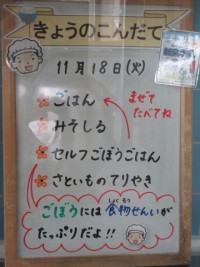 きょうのこんだて
11月18日(火)
ごはん
まぜて
たべてね
みそしる
セルフごぼうごはん
さといものてりやき
ごぼうには食物せんいが
しょくもつ
たっぷりだよ!!